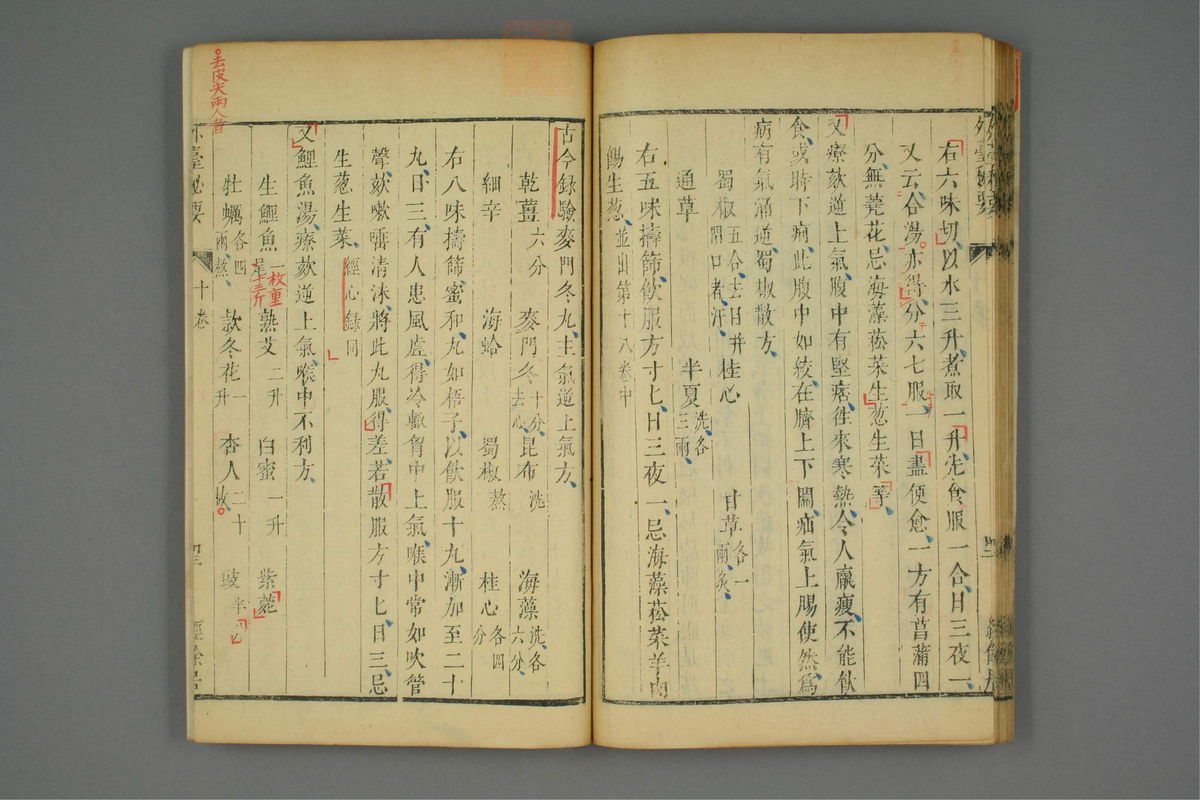 右六味切以水三升煮取一升先食服一合日三夜一
又云合湯亦得分六七服一日盡便愈一方有菖蒲四
分無蕘花忌海藻菘菜生葱生菜等
又療欬逆上氣腹中有堅痞往來寒熱令人羸瘦不能飲
食或時下痢此腹中如絞在臍上下關疝氣上腸使然為
病有氣涌逆蜀椒散方
蜀椒五合去目并閉口者汗 桂心 甘草各一兩炙
通草 半夏洗各三兩
右五味擣篩飲服方寸匕日三夜一忌海藻菘菜羊肉
餳生葱並出第十八卷中
古今録驗麥門冬丸主氣逆上氣方
乾薑六分 麥門冬十分去心 昆布洗 海藻洗各六分
細辛 海蛤 蜀椒熬 桂心各四分
右八味擣篩蜜和丸如梧子以飲服十丸漸加至二十
丸日三有人患風虚得冷輙胷中上氣喉中常如吹管
聲欬嗽唾清沫將此丸服得差若散服方寸匕日三忌
生葱生菜經心録同
又鯉魚湯療欬逆上氣喉中不利方
生鯉魚一尾 熟艾二升 白蜜一升 紫菀
牡蠣各四兩熬 款冬花一升 杏人二十枚 豉半
外臺秘要 十卷
去皮尖兩人者
一枚重十三斤
外臺秘要
經餘居